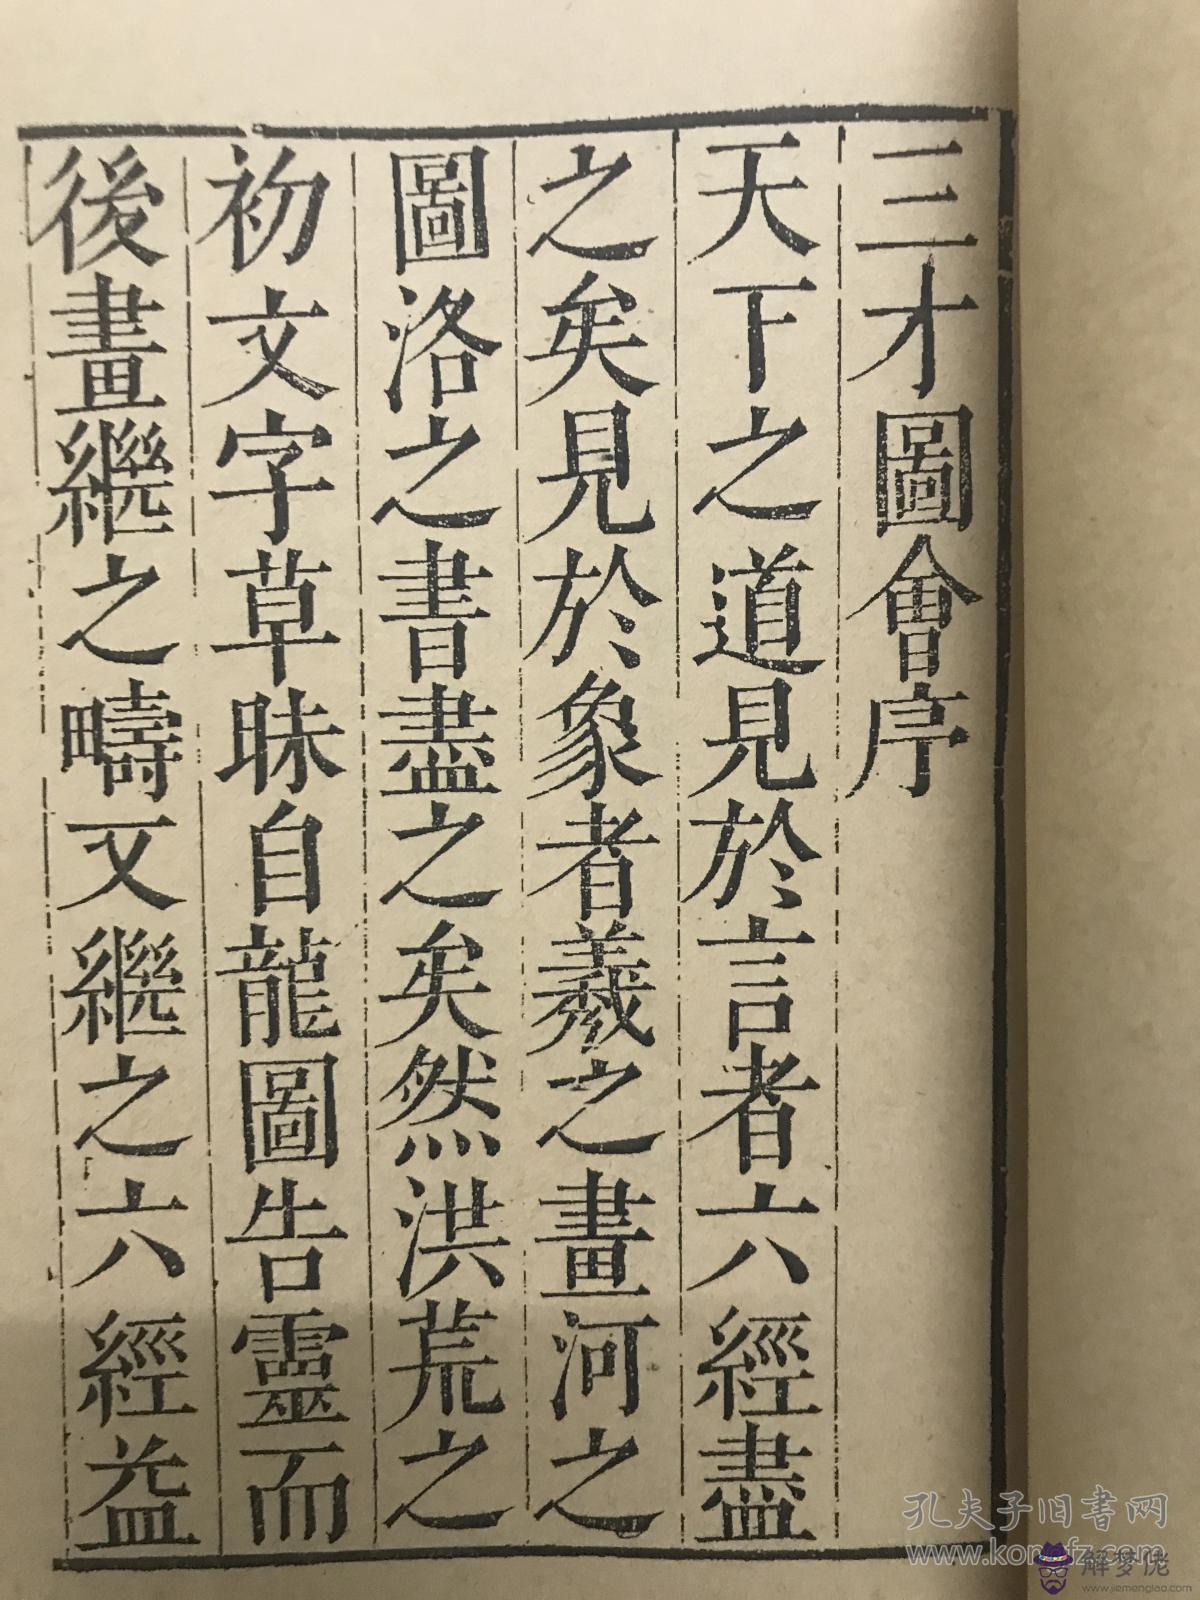 三才圖會序
天下之道見於言者六經盡
之矣見於象者羲之畫河之
圖洛之書盡之矣然洪荒之
初文字草昧自龍圖告靈而
後畫繼之疇又繼之六經益
孔夫子旧书网
www.kongfz.com
解梦佬
www.jiemenglao.com